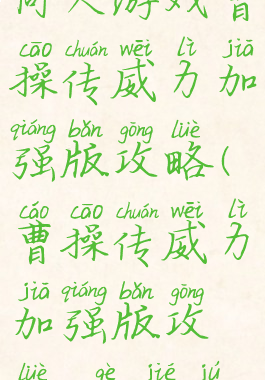 商人游戏曹
cāo chuán wēi lì jiā
操传威力加
qiáng bǎn gōng lüè
强版攻略(
cáo cāo chuán wēi lì
曹操传威力
jiā qiáng bǎn gōng
加强版攻
lüè gè jié jú